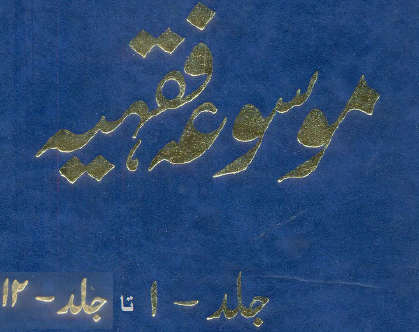 موسوعہ فقہیہ
جلد - ۱ تا جلد - ۱۲